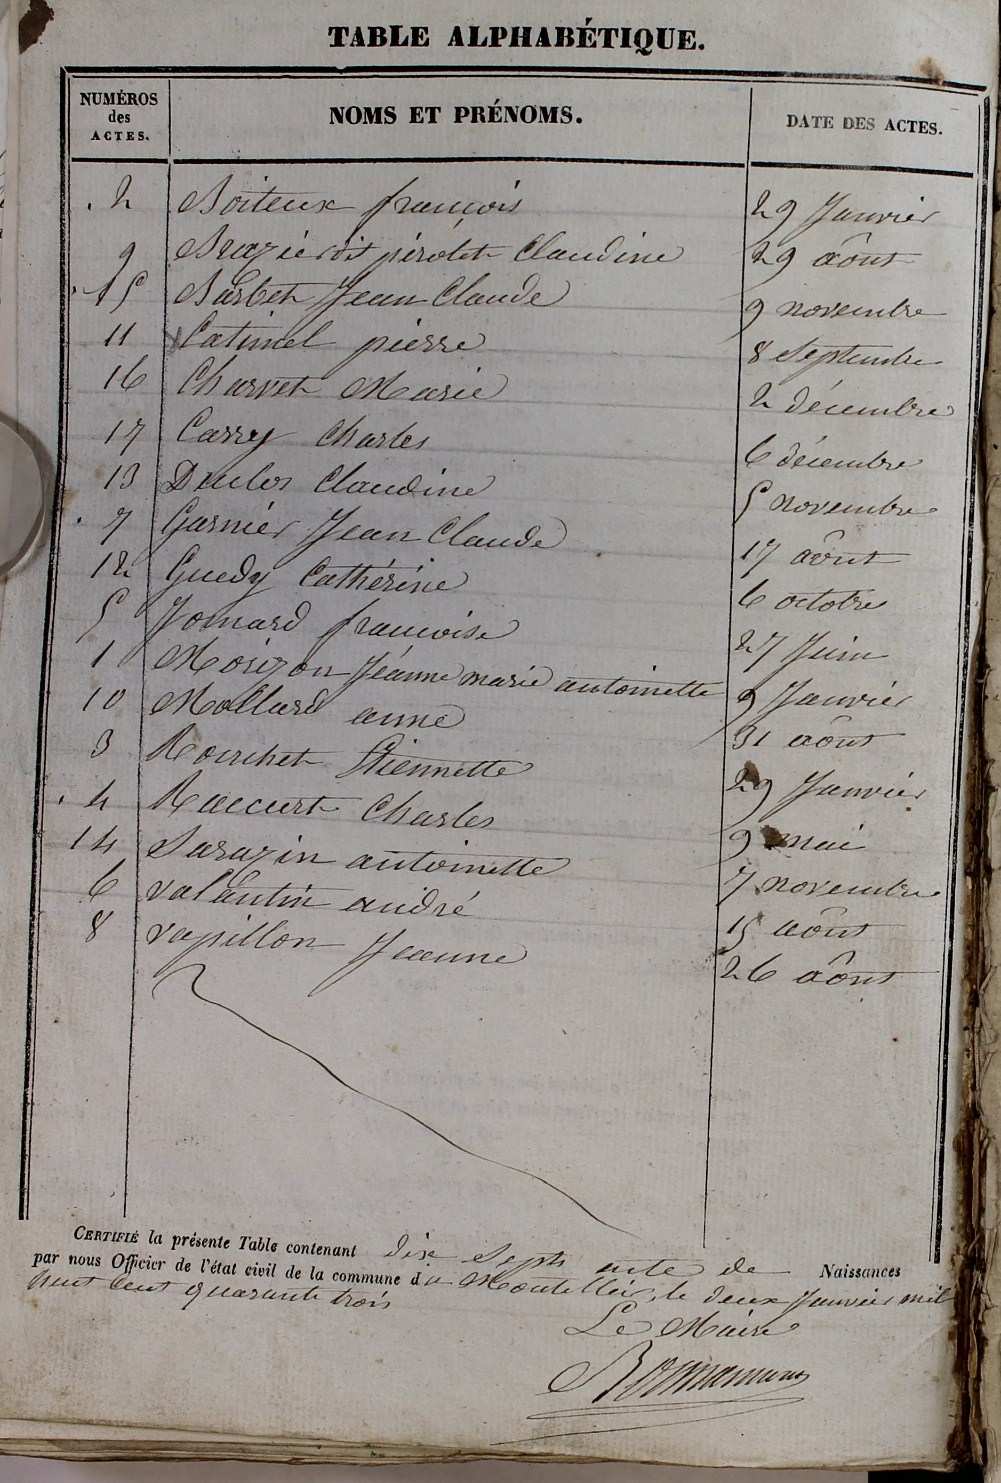 TABLE ALPHABÉTIQUE.
NUMÉROS des ACTES. NOMS ET PRÉNOMS. DATE DES ACTES.
2 Boiteux françois 29 Janvier
9 Brazier dit pirolet Claudine 29 aôut
15 Barbet Jean Claude 9 novembre
11 Catimel pierre 8 Septembre
16 Charvet Marie 2 décembre
17 Carry Charles 6 décembre
13 Duclos Claudine 5 novembre
7 Garnier Jean Claude 17 aôut
12 Guedy Cathérine 6 octobre
5 Jomard francoise 27 Juin
1 Morizon Jéanne marie antoinette 9 Janvier
10 Mollard anne 31 aôut
3 Rourchet Etiennette 29 Janvier
4 Raccurt Charles 9 mai
14 Sarazin antoinette 7 novembre
6 valantin andré 15 aôut
8 vapillon Jeanne 26 aôut
CERTIFIÉ la présente Table contenant dix Sept acte de Naissances
par nous Officier de l'état civil de la commune du Montellier, le deux Janvier mil
huit cent quarante trois
Le Maire